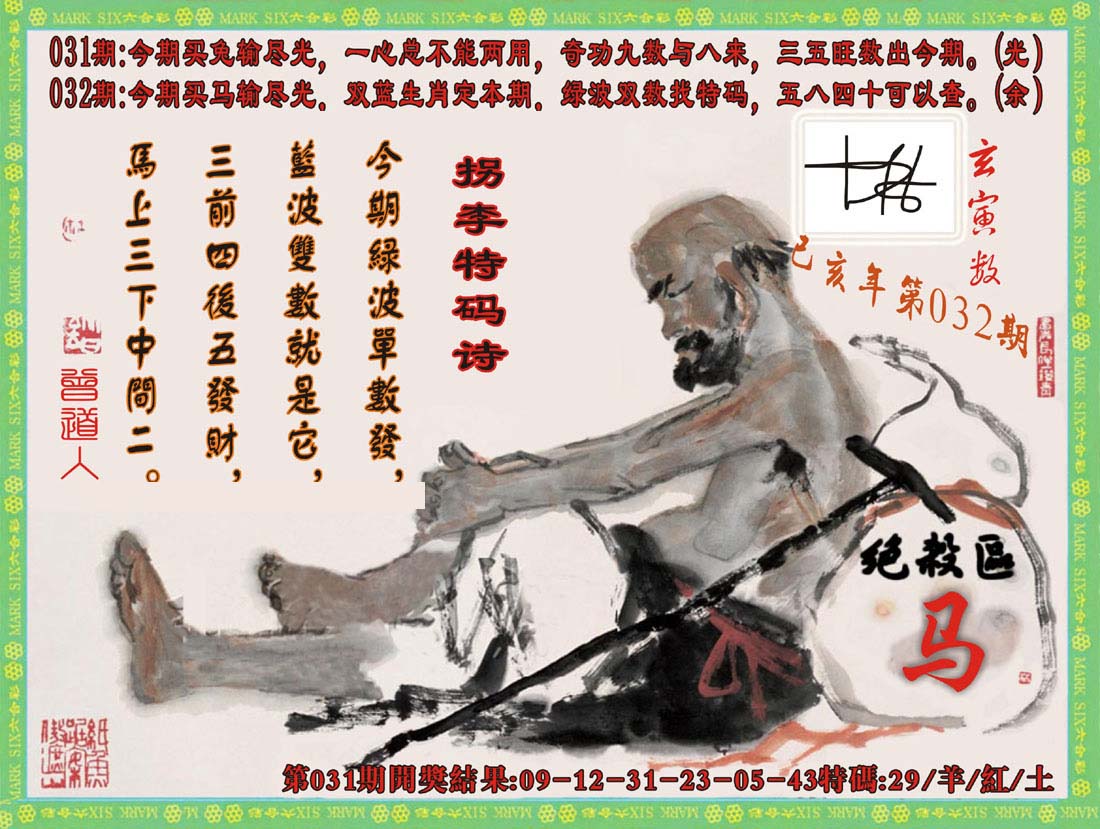 MARK SIX六合彩
031期:今期买兔输尽光，一心总不能两用，奇功九数与八来，三五旺数出今期。(光)
032期:今期买马输尽光．双蓝生肖定本期．绿波双数找特码，五八四十可以查。(余)
拐李特码诗
今期綠波單數發，
藍波雙數就是它，
三前四後五發財，
馬上三下中間二。
曾道人
玄寅数
己亥年第032期
绝殺區
马
第031期開獎結果:09-12-31-23-05-43特碼:29/羊/紅/土